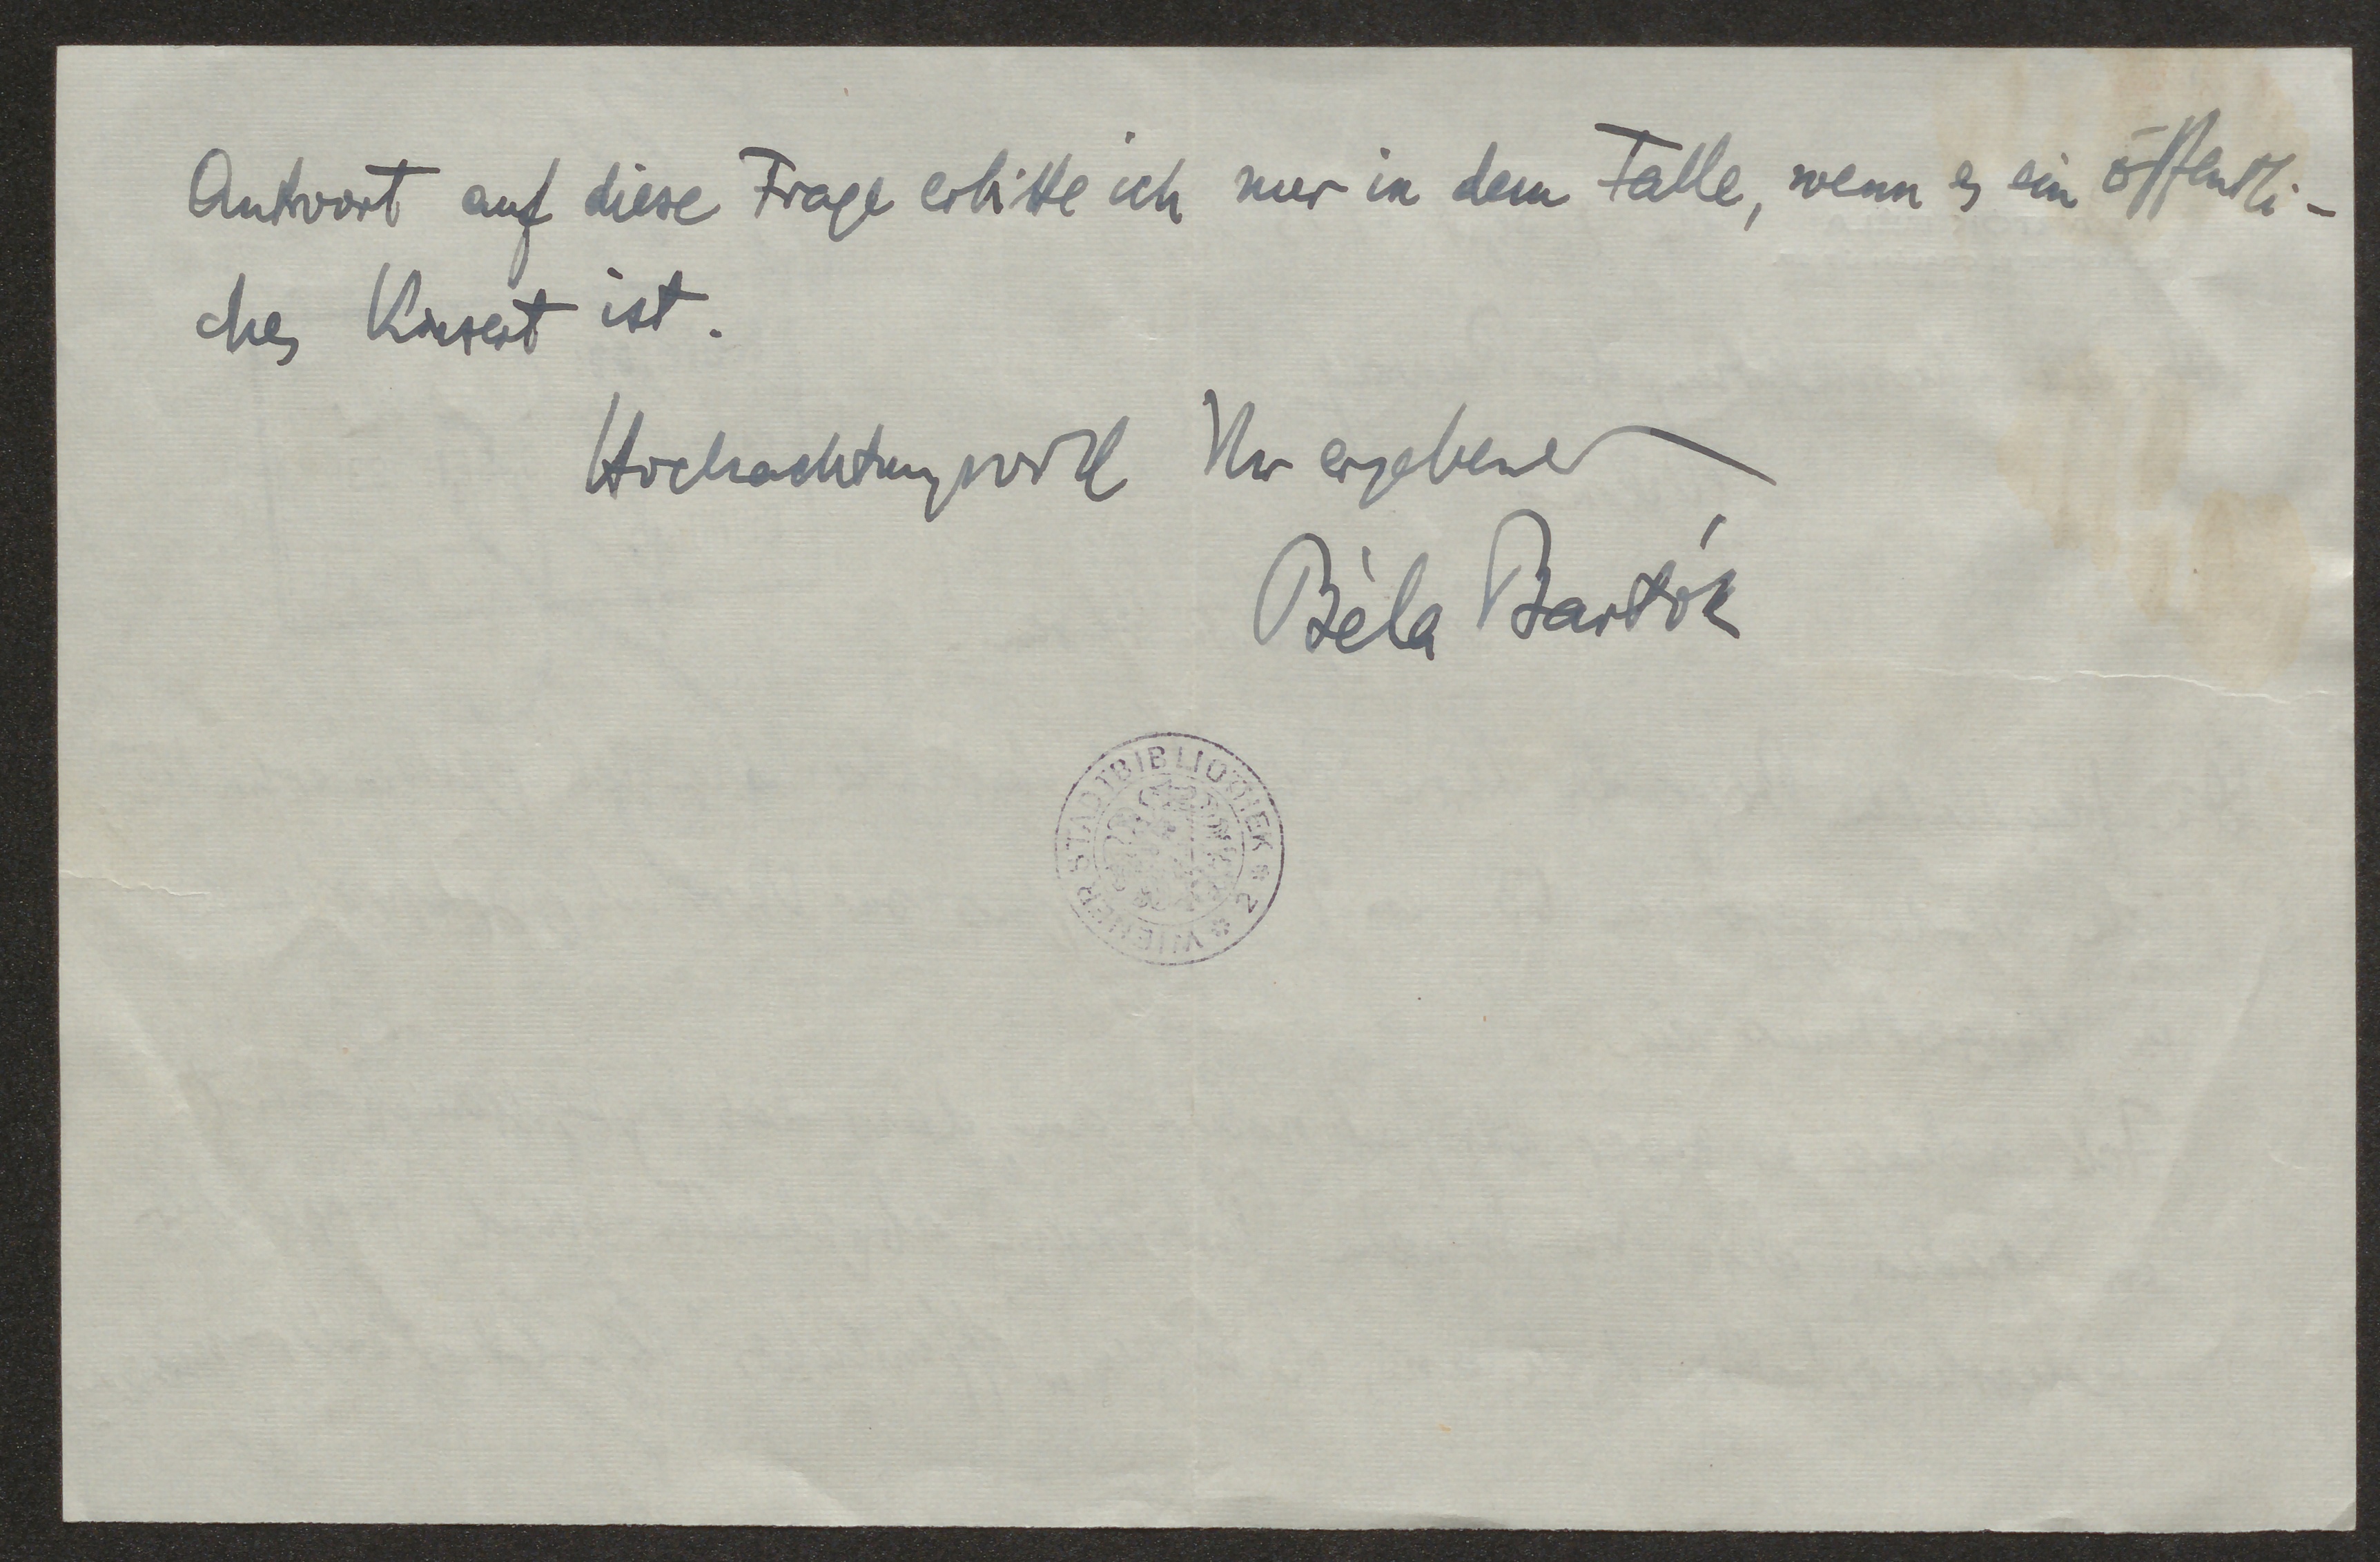 Antwort auf diese Frage erbitte ich nur in dem Falle, wenn es ein öffentli-
ches Konzert ist.
Hochachtungsvoll Ihr ergebener
Béla Bartók
WIENER STADTBIBLIOTHEK * 2 *